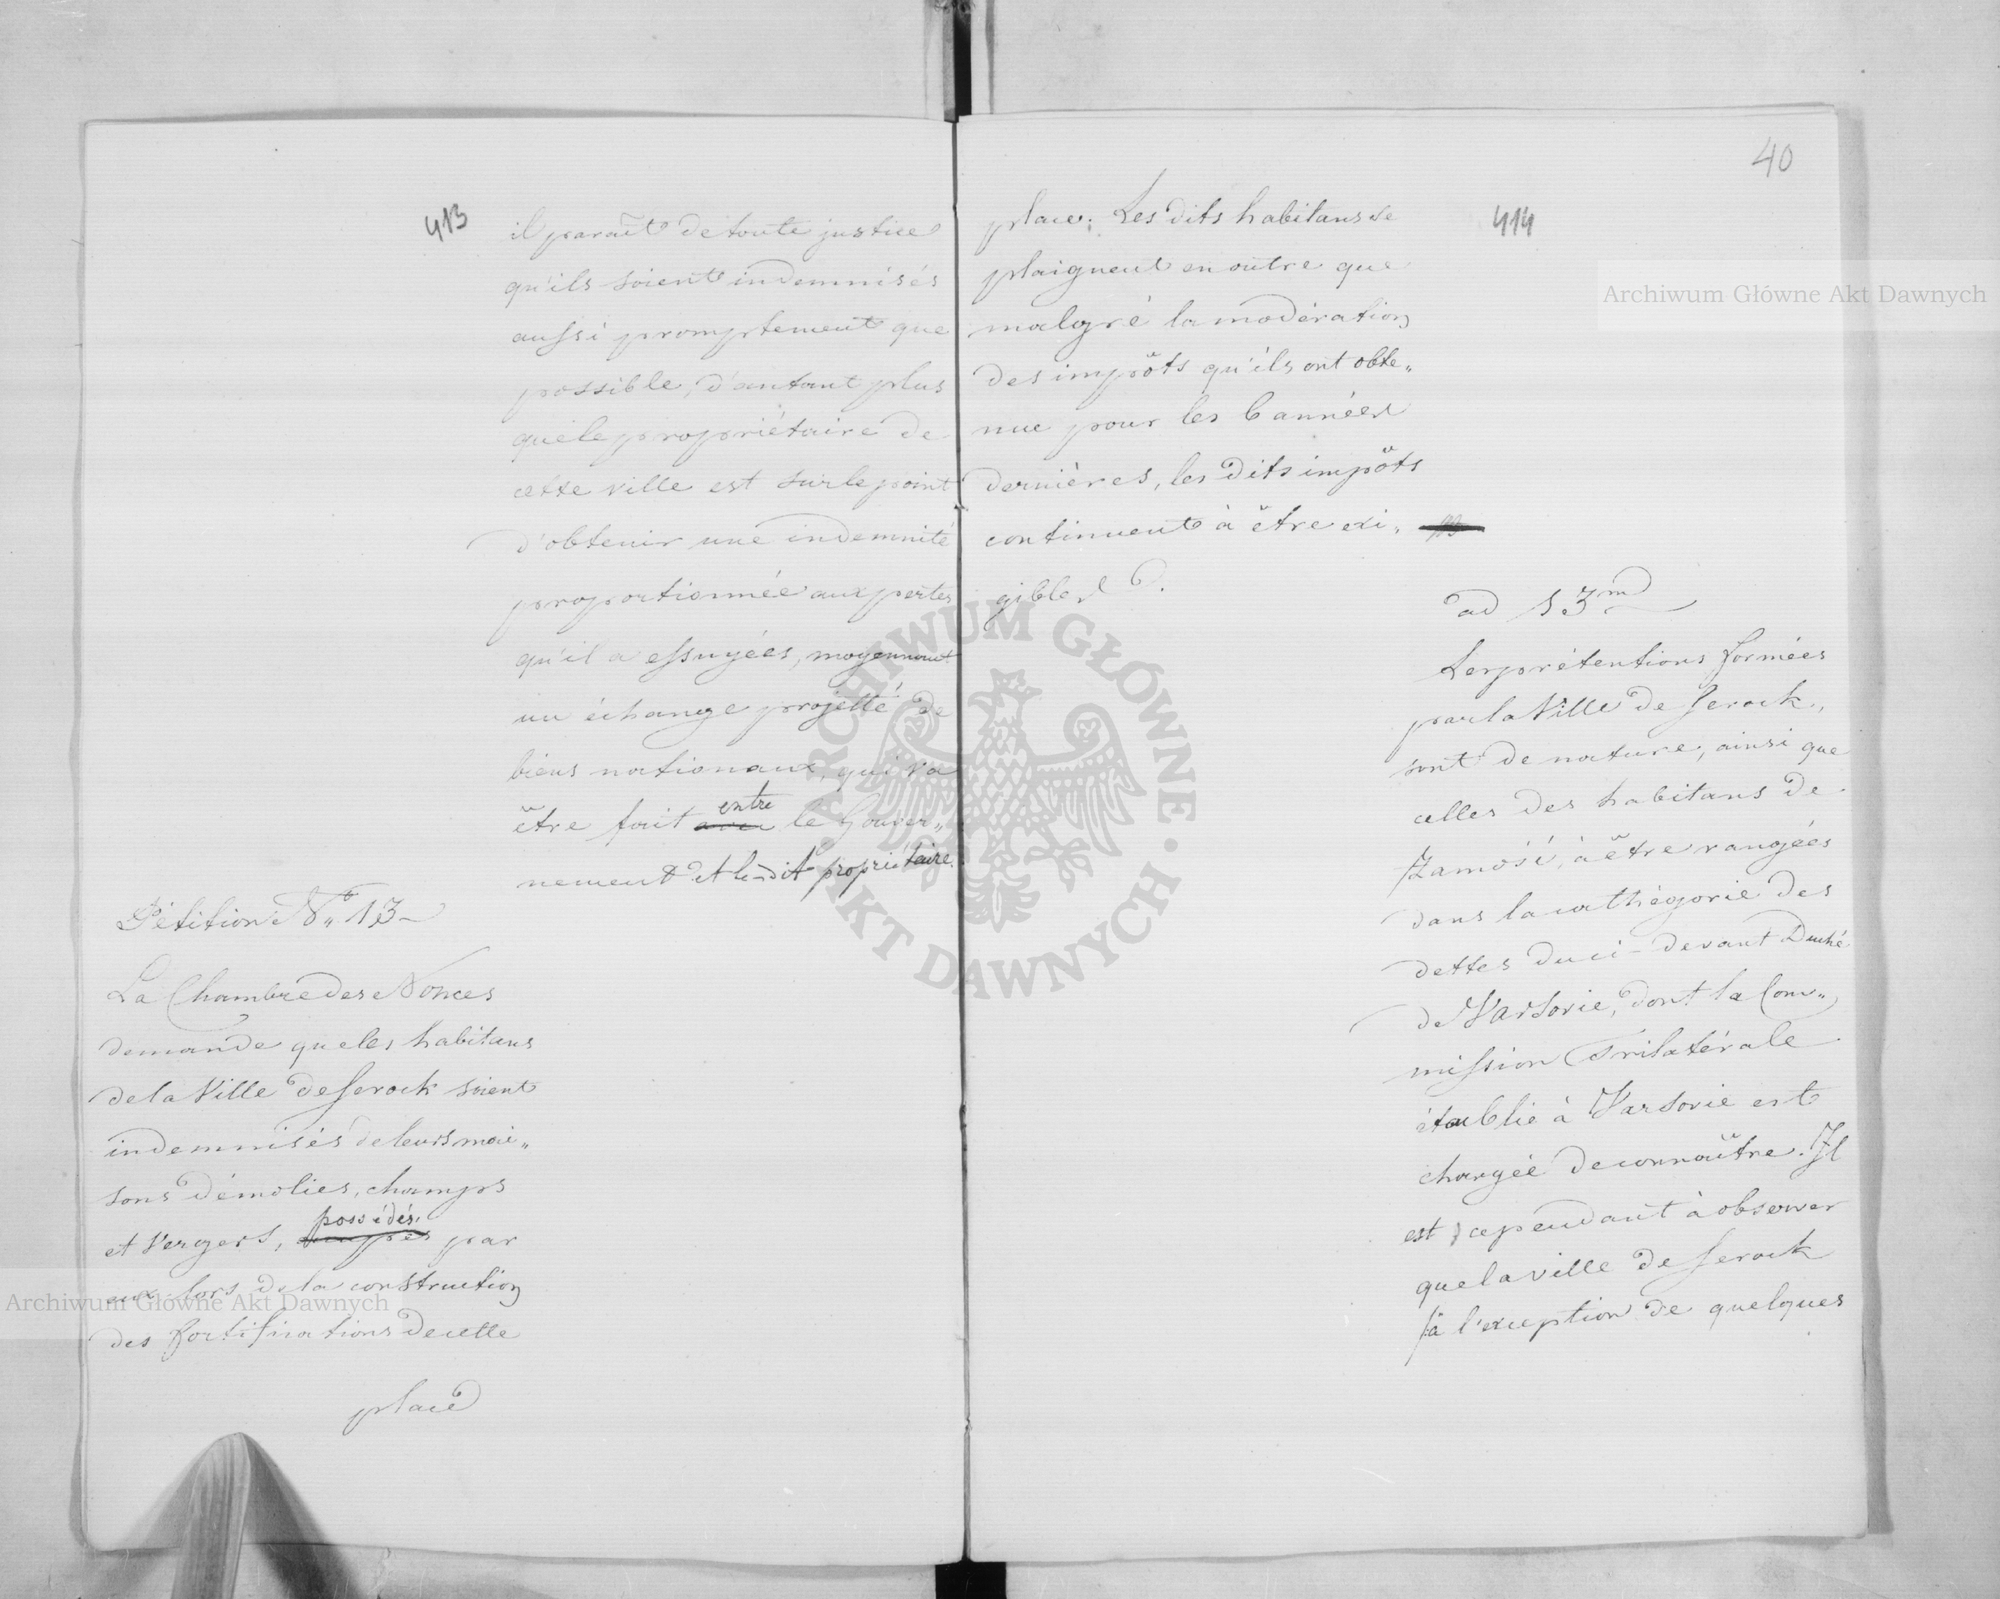 413
il paraît de toute justice
qu'ils soient indemnisés
aussi promptement que
possible, d'autant plus
que le propriétaire de
cette ville est sur le point
d'obtenir une indemnité
proportionnée aux pertes
qu'il a essuyées, moyennant
un échange projetté de
biens nationaux, qui va
entre
être fait avec le Gouver„
nement et le dit propriétaire.
Pétition N° 13
La Chambre des Nonces
demande que les habitans
de la Ville de Serock soient
indemnisés de leurs mai„
sons démolies, champs
possédés
et Vergers, par
eux lors de la construction
des fortifications de cette
place
40
414
place. Les dits habitans se
plaignent en outre que
malgré la modération
des impôts qu'ils ont obte„
nue pour les 6 années
dernières, les dits impôts
continuent à être exi„
gibles.
ad 13m
Les prétentions formées
par la Ville de Serock,
sont de nature, ainsi que
celles des habitans de
Zamość, à être rangées
dans la cathégorie des
dettes du ci-devant Duché
de Varsovie, dont la Com„
mission Trilatérale
établie à Varsovie est
chargée de connaître. Il
est cependant à observer
que la ville de Serock
/à l'exception de quelques
Archiwum Główne Akt Dawnych
Archiwum Główne Akt Dawnych
ARCHIWUM GŁÓWNE AKT DAWNYCH